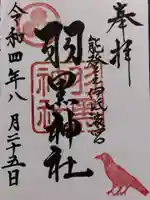 奉拝
能登
羽黒神社
令和四年八月二十五日